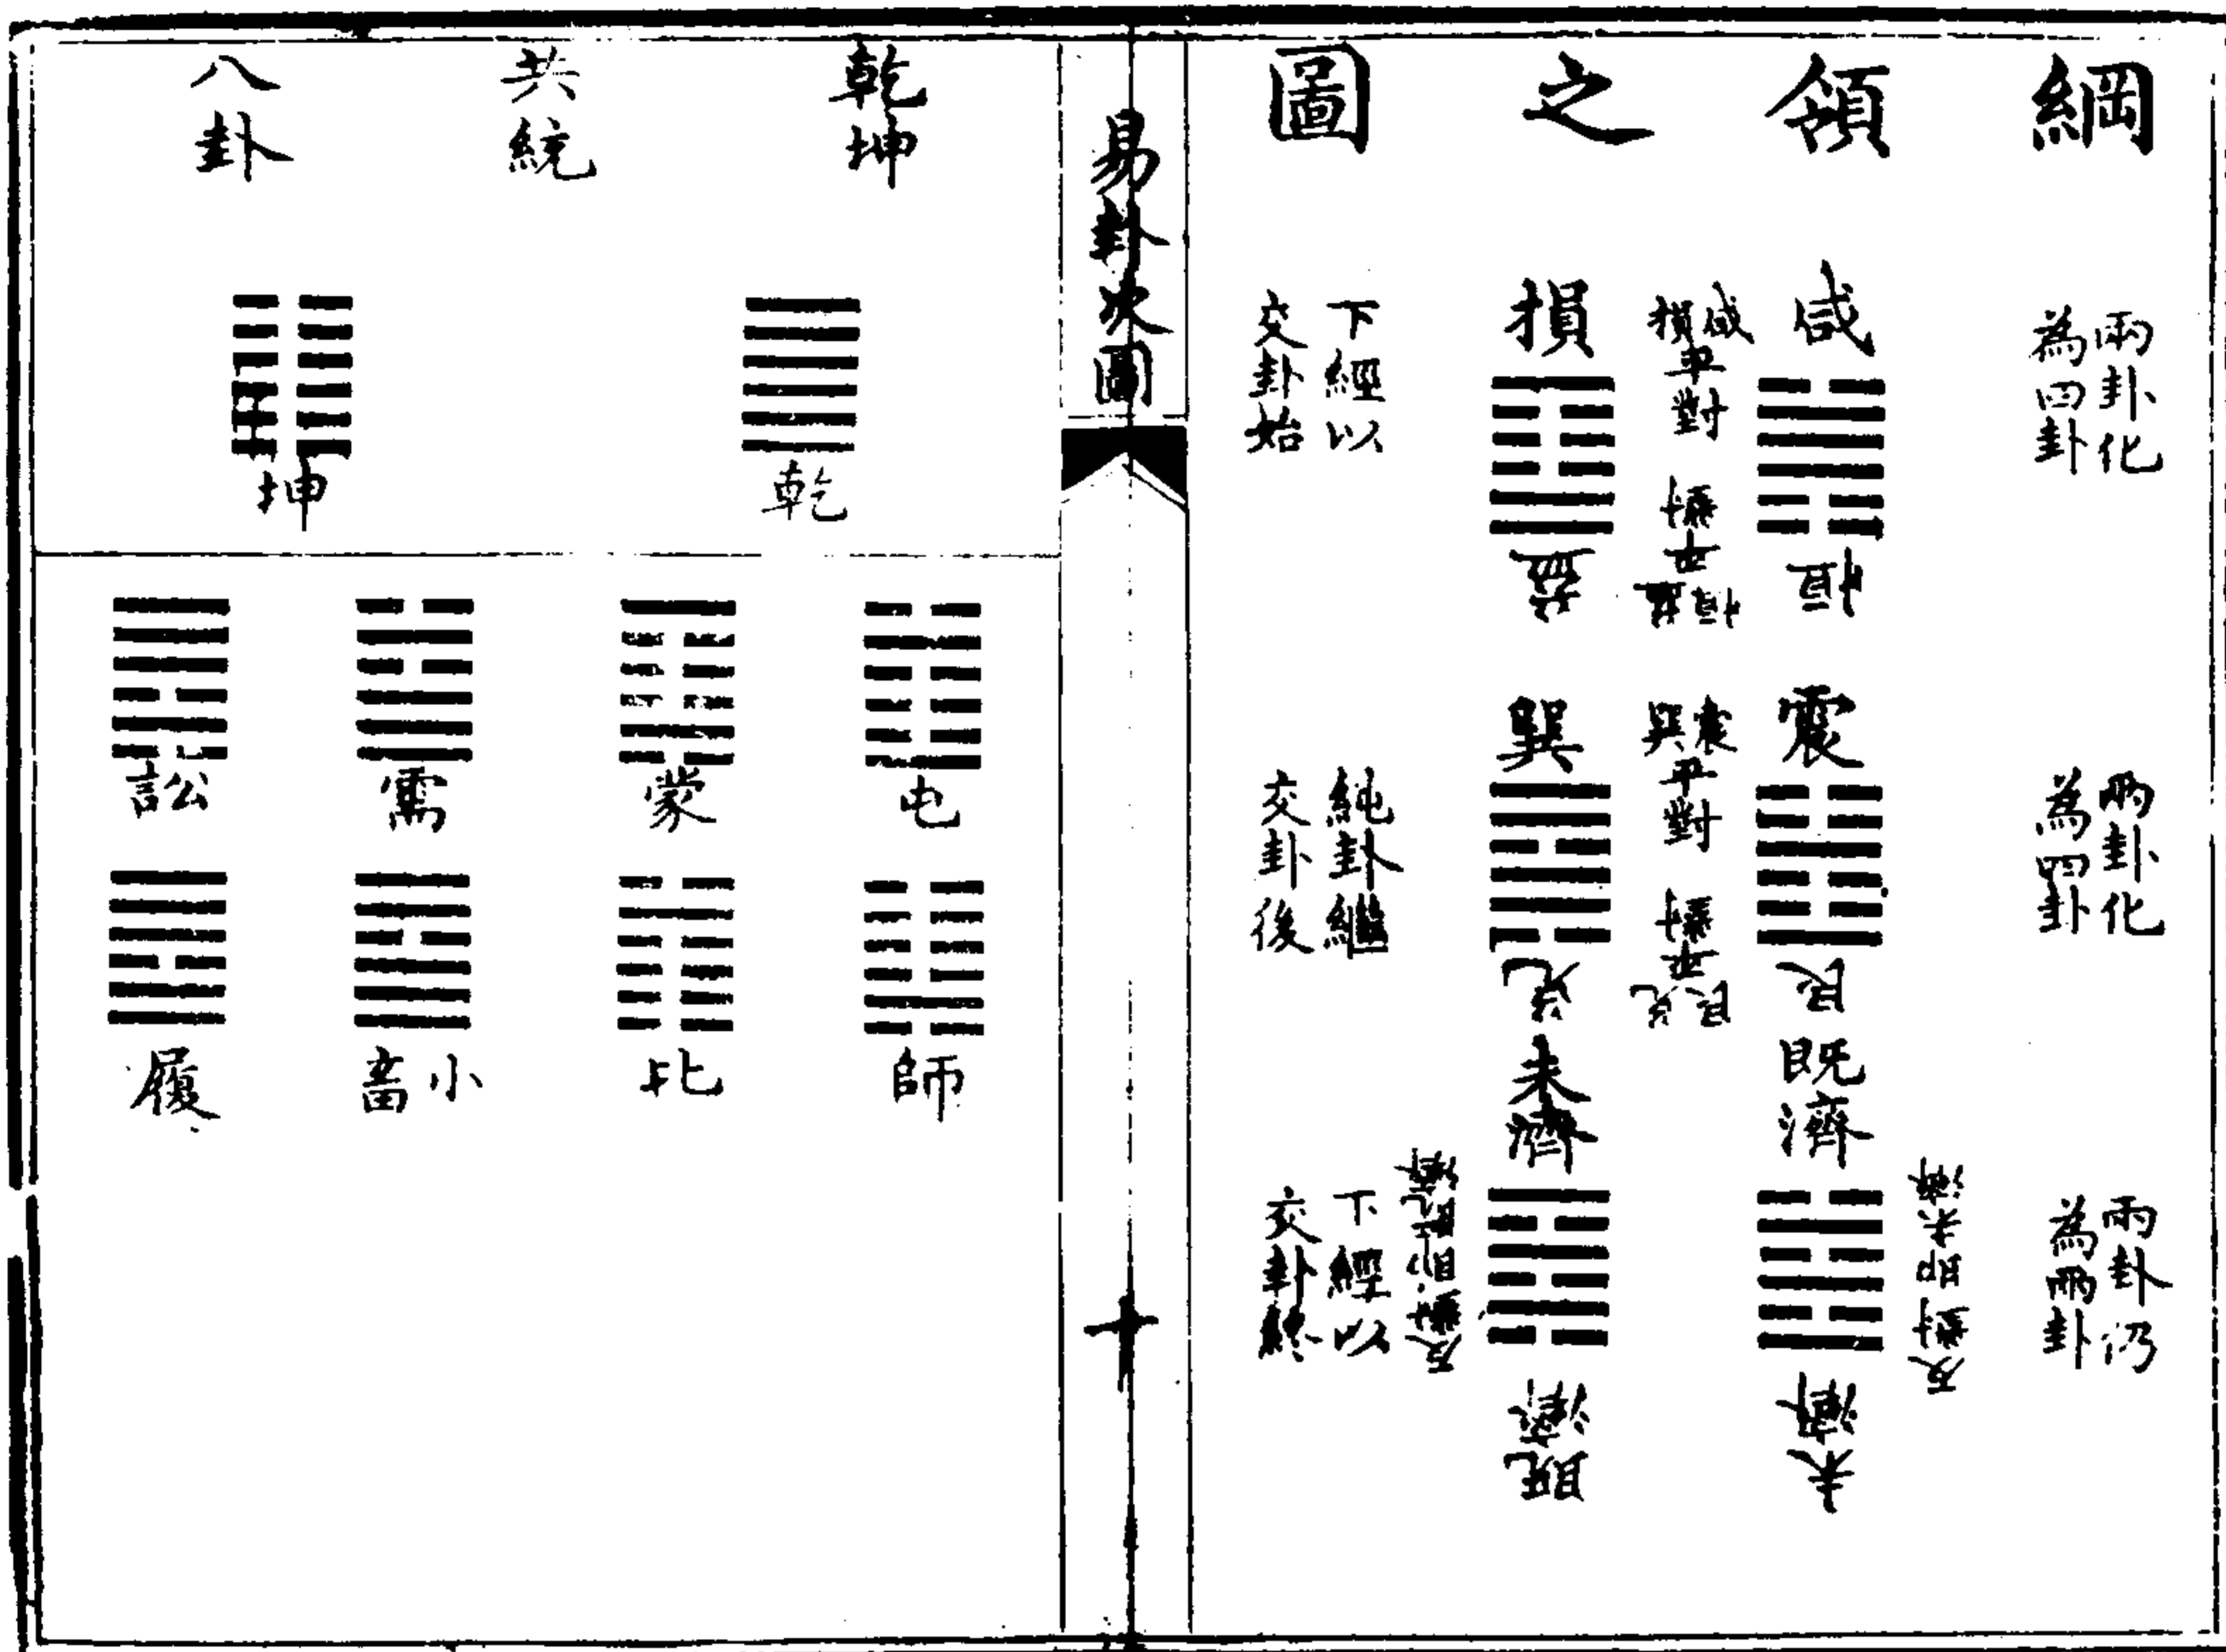 綱領之圖
兩卦化
為四卦
咸
恒
咸損平對
恒益平對
損
益
下經以
交卦始
兩卦化
為四卦
震
艮
震巽平對
艮兌平對
巽
兌
純卦繼
交卦後
兩卦仍
為兩卦
反對即未濟
既濟
未濟
未濟
既濟
反對即既濟
下經以
交卦終
易卦次圖
十
乾坤
共統
八卦
乾
坤
屯
蒙
需
訟
師
比
小畜
履